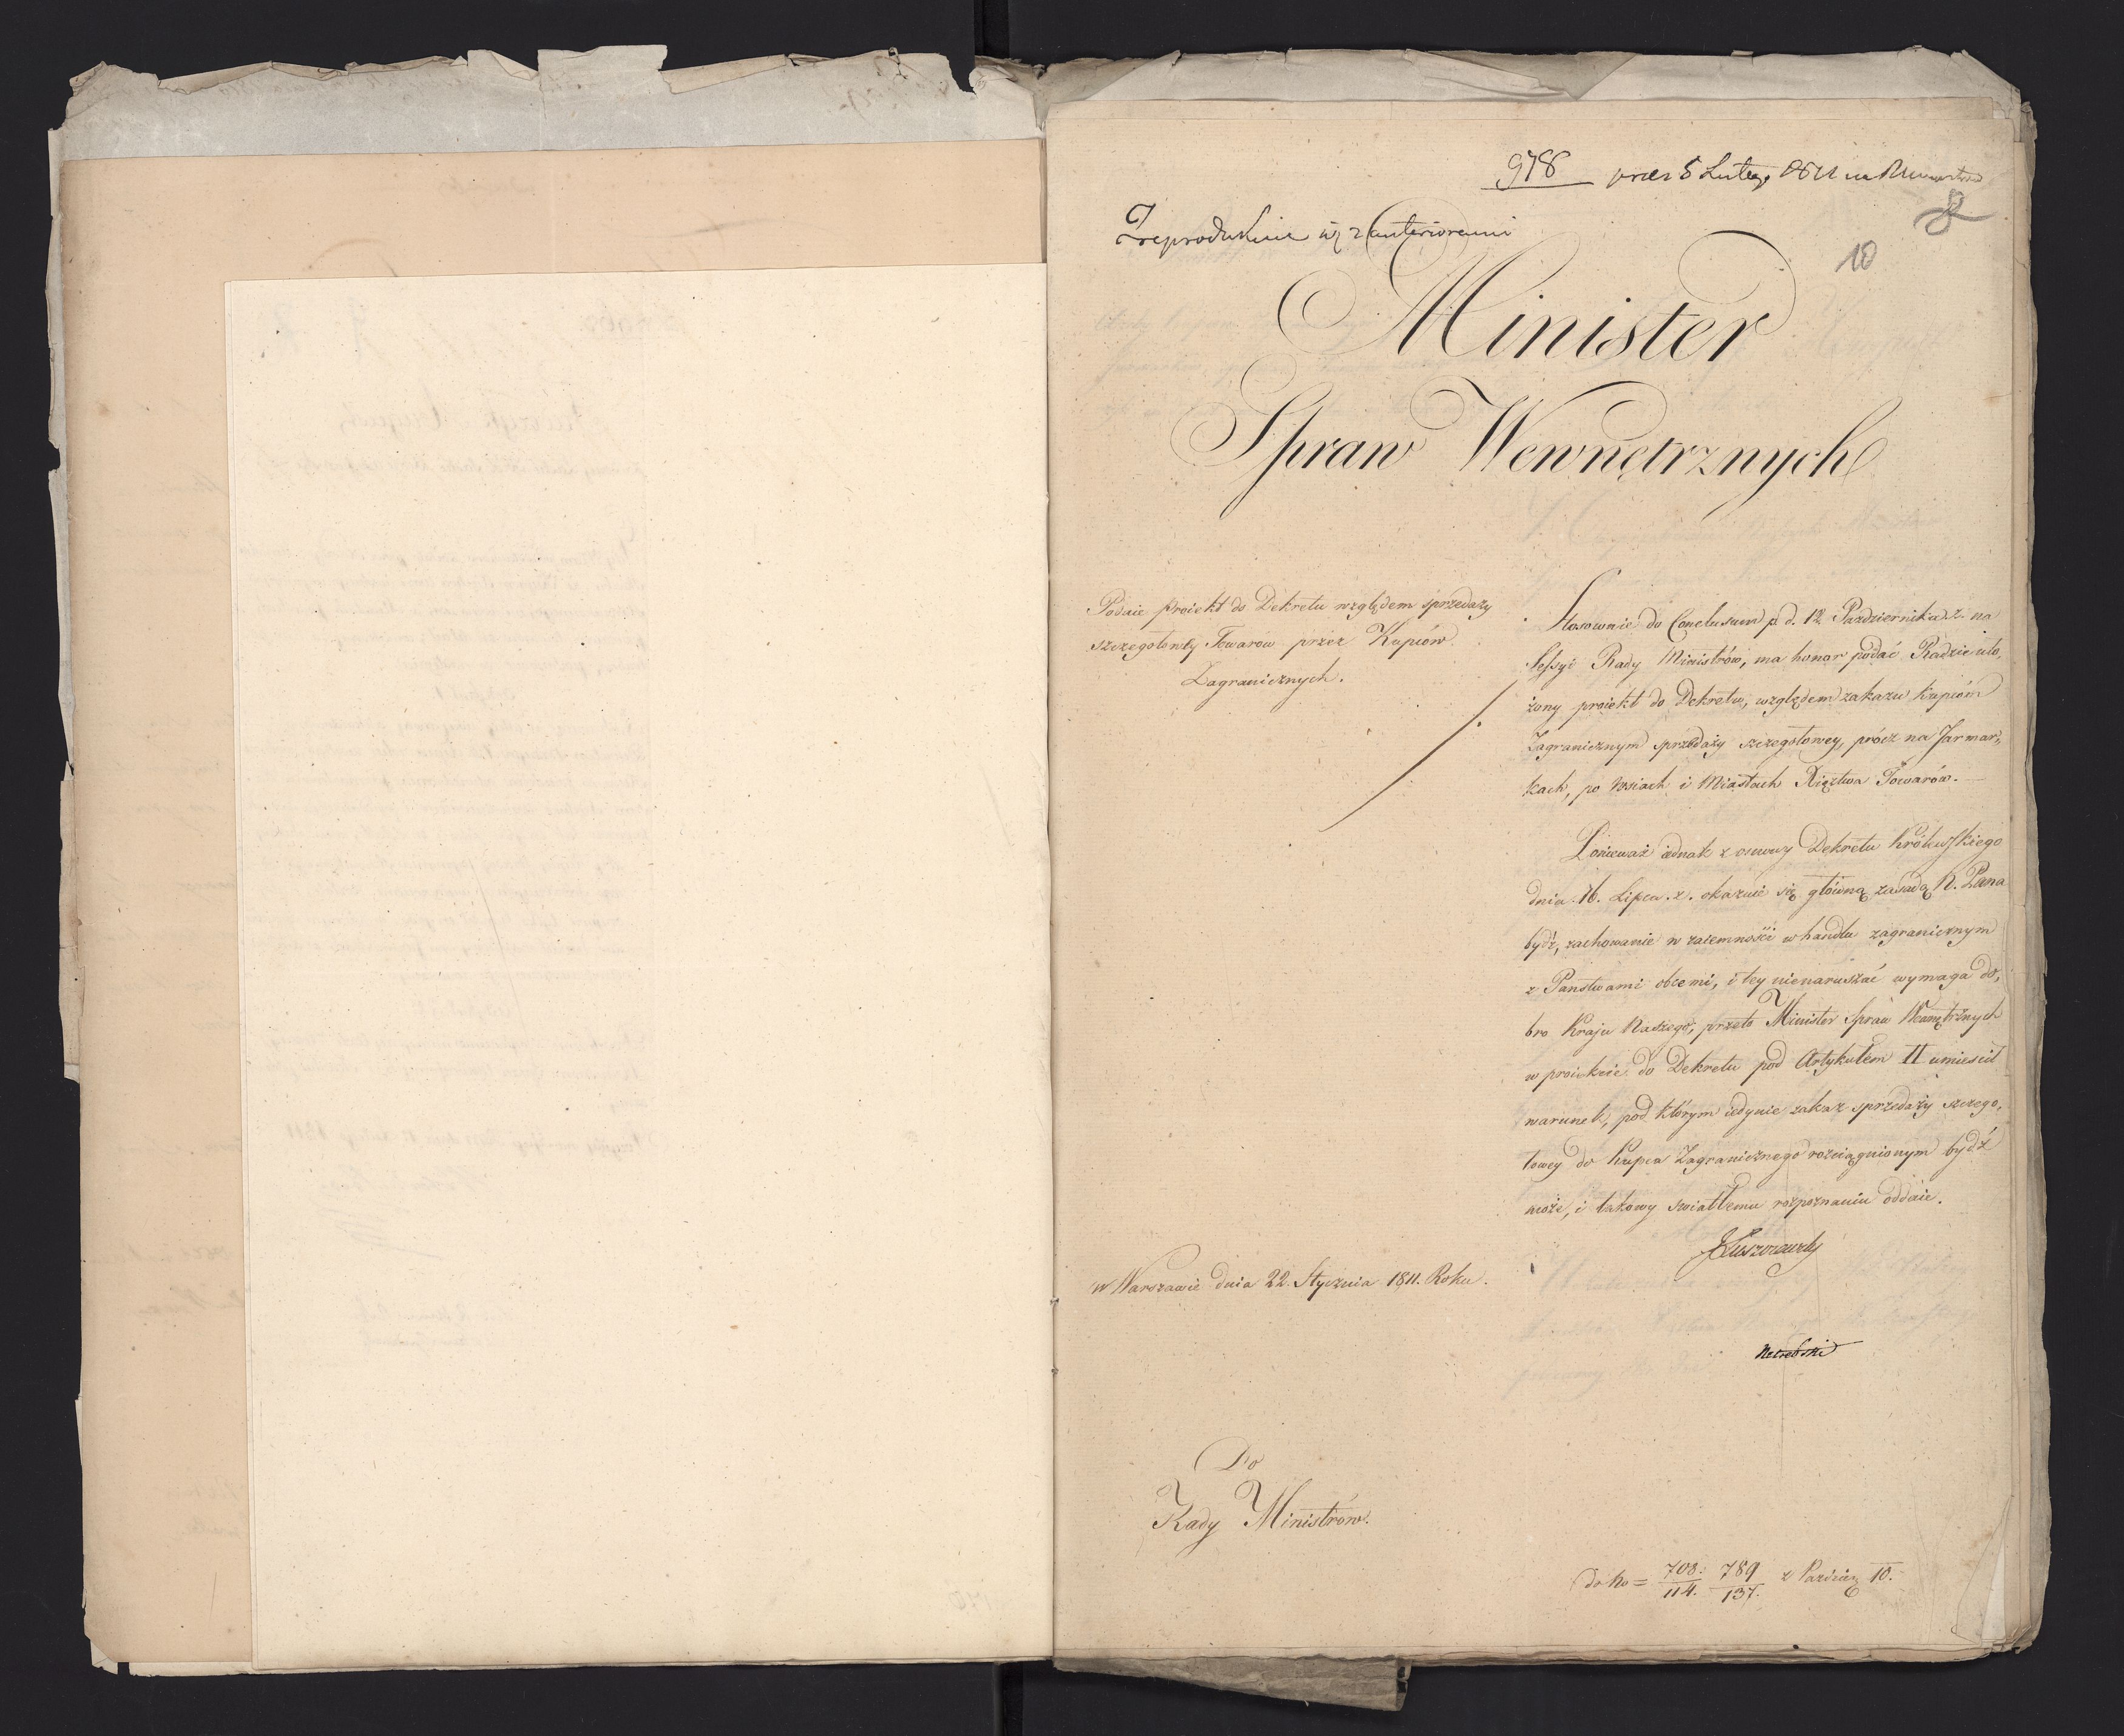 978 præs 5 Lutego 1811
8
Zreprodukcie w z anterioremi
10
Minister
Spraw Wewnętrznych
Podaie proiekt do Dekretu względem sprzedaży
szczegołowey Towarów przez Kupców
Zagranicznych.
Stosownie do Conclusum p. d. 12 Października z. na
Sessyi Rady Ministrów, ma honor podać Radzie uło,
żony proiekt do Dekretu, względem zakazu Kupcóm
Zagranicznym sprzedaży szczegołowey, prócz na Jarmar,
kach, po wsiach i Miastach Xięztwa Towarów.
Ponieważ iednak z osnowy Dekretu Królewskiego
dnia 16. Lipca. z. okazuie się główną zasadą N. Pana
bydź, zachowanie wzaiemności w handlu zagranicznym
z Państwami obcemi, i tey nienaruszać wymaga do,
bro Kraju Naszego; przeto Minister Spraw Wewnętrznych
w proiekcie do Dekretu pod Artykułem II umieścił
warunek, pod którym iedynie zakaz sprzedaży szczego,
łowey do Kupca Zagranicznego rozciągnionym bydź
może, i takowy światłemu rozpoznaniu oddaie.
JŁuszczewski
w Warszawie dnia 22. Stycznia 1811. Roku.
Netrebski
Do
Rady Ministrów.
do No = 708: 789 z Paździer 10.
114. 137.